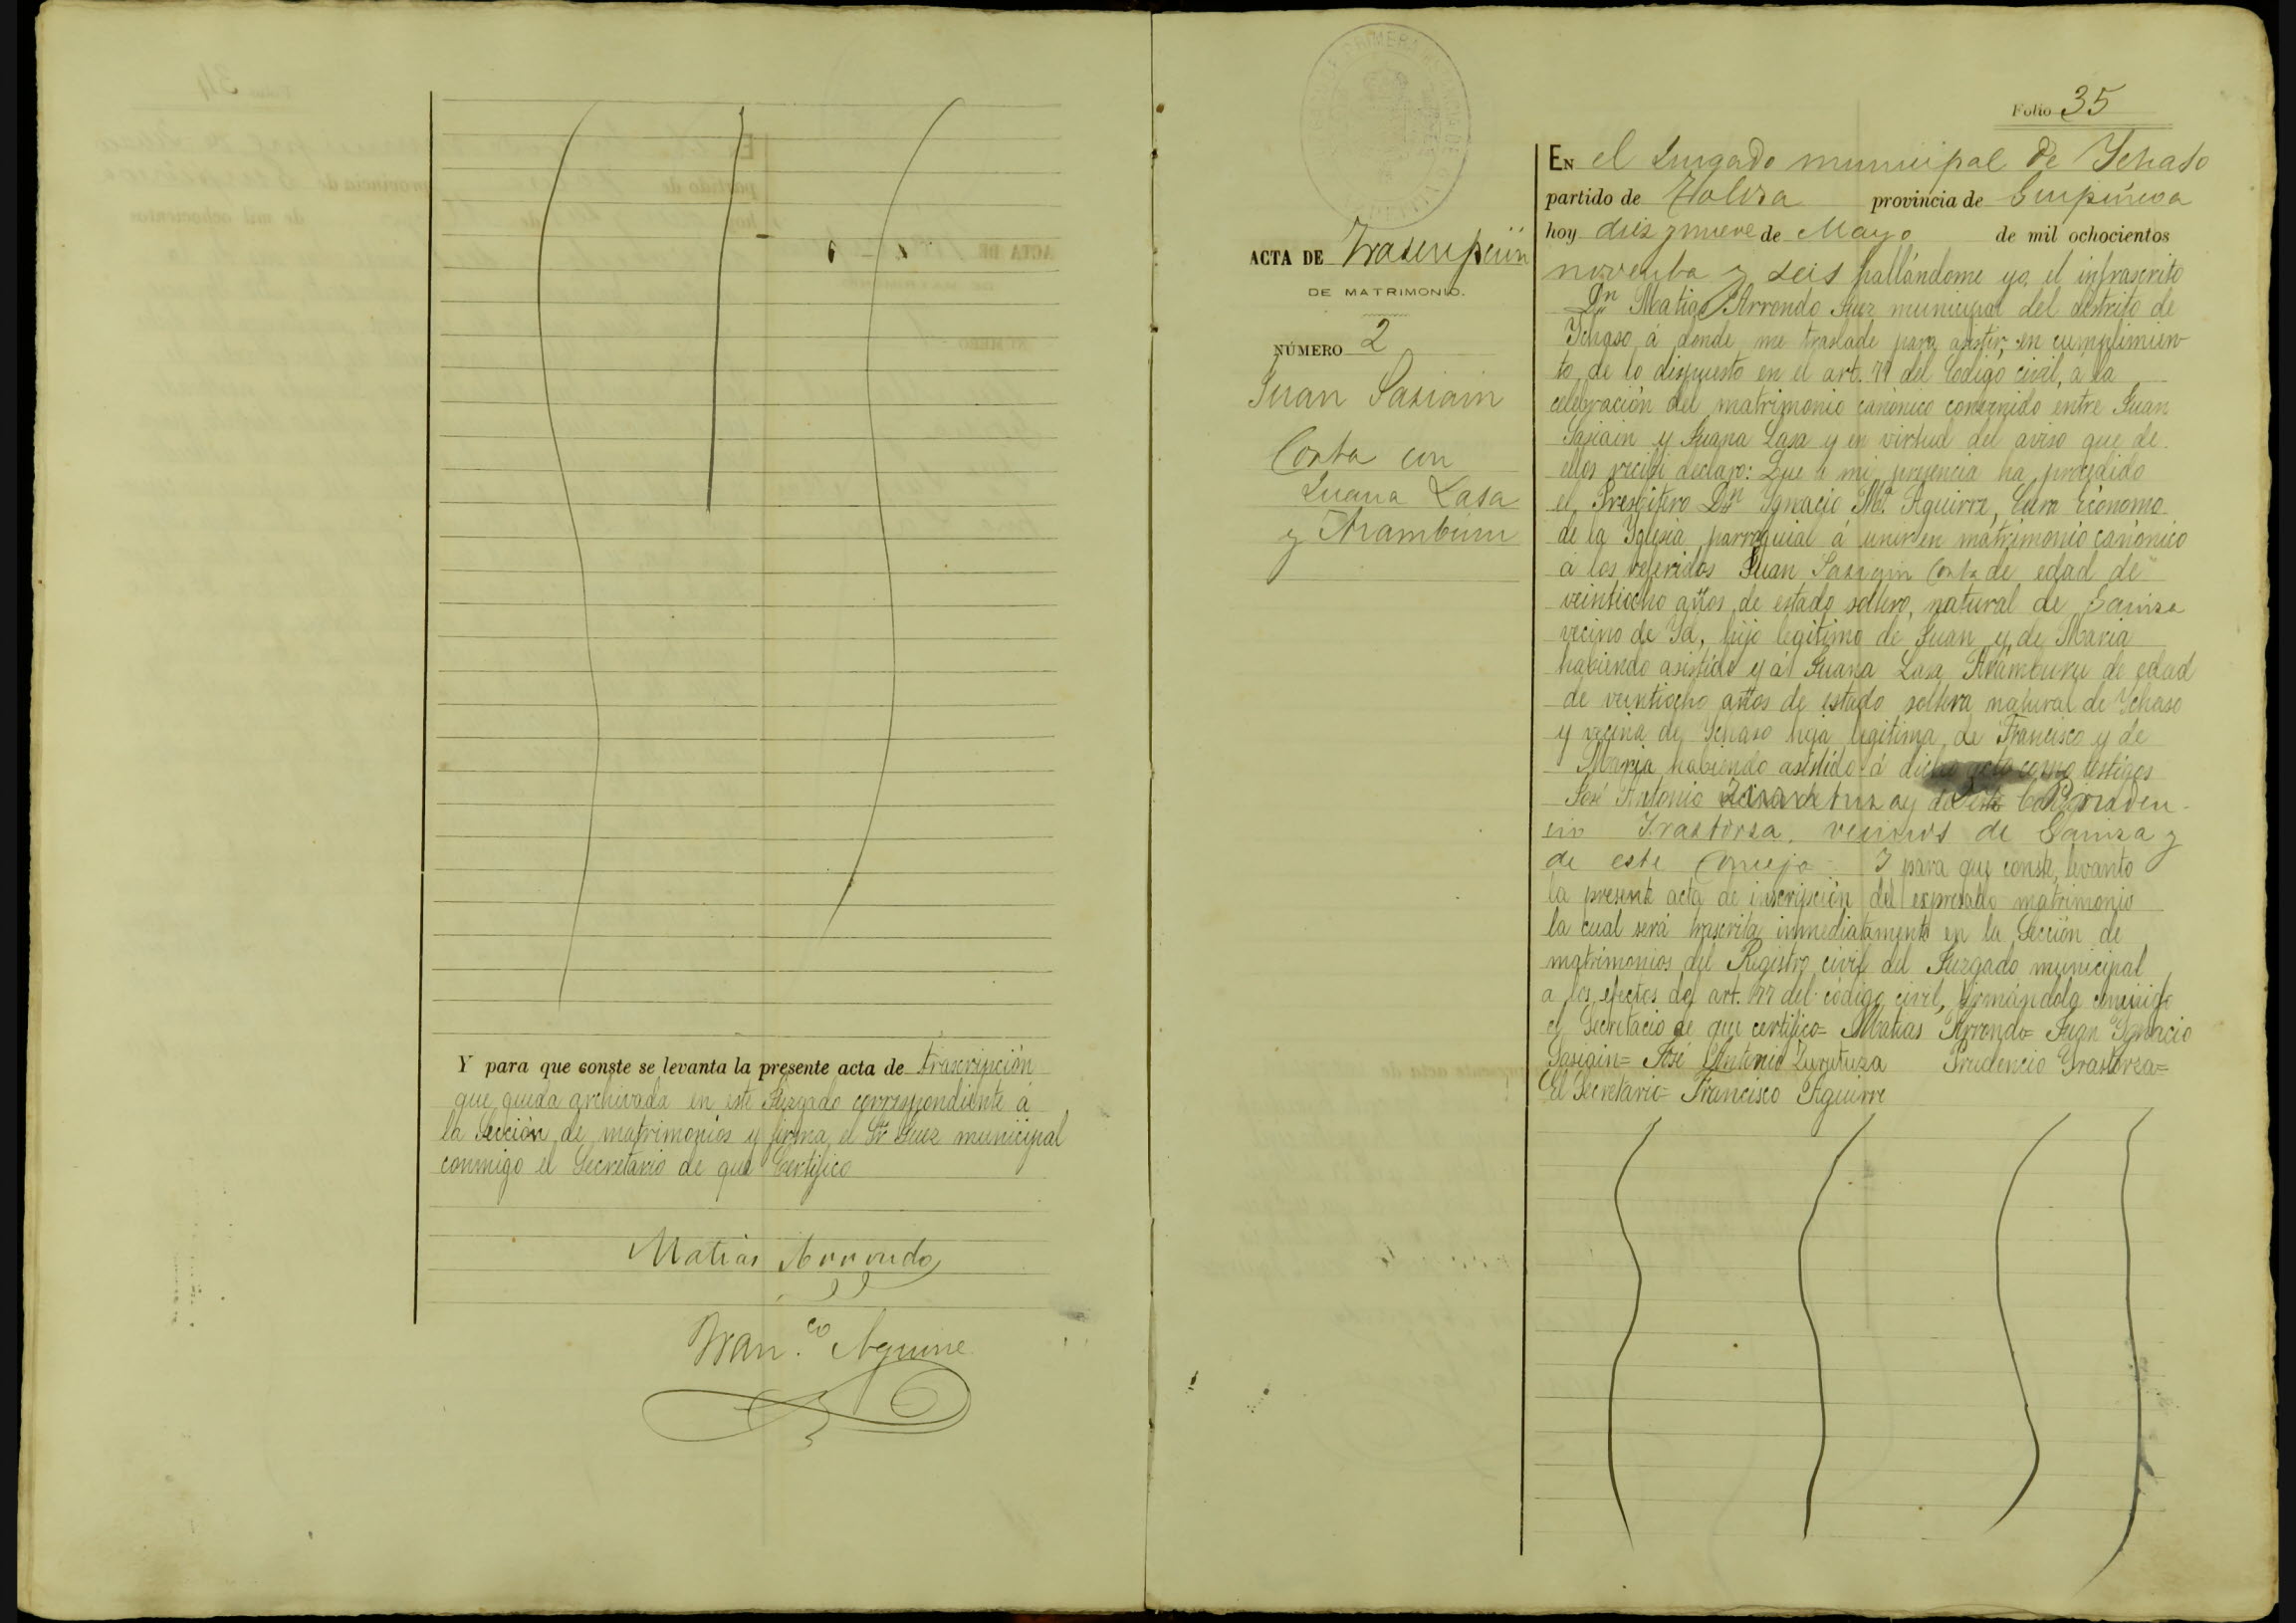 Y para que conste se levanta la presente acta de trascripción
que queda archivada en este Juzgado correspondiente á
la Sección de matrimonios y firma el Sr Juez municipal
conmigo el Secretario de que Certifico
Matias Arrondo
Fran.co Aguirre
Folio 35
ACTA DE Trascripción
DE MATRIMONIO.
NÚMERO 2
Juan Sasiain
Corta con
Juana Lasa
y Aramburu
En el Juzgado municipal de Ychaso
partido de Tolosa provincia de Guipúzcoa
hoy diez y nueve de Mayo de mil ochocientos
noventa y seis hallándome yo, el infrascrito
Dn Matias Arrondo Juez municipal del distrito de
Ychaso á donde me traslade para asistir, en cumplimien-
to de lo dispuesto en el art. 77 del Codigo civil, a la
celebración del matrimonio canónico convenido entre Juan
Sasiain y Juana Lasa y en virtud del aviso que de
ellos recibi declaro: Que á mi presencia ha procedido
el Presbitero Dn Ygnacio Mª Aguirre, Cura Ecónomo
de la Yglesia parroquial á unir en matrimonio canónico
á los referidos Juan Sasiain Corta de edad de
veintiocho años, de estado soltero, natural de Gainza
vecino de Yd, hijo legitimo de Juan y de Maria
habiendo asistido y á Juana Lasa Aramburu de edad
de veintiocho años de estado soltera natural de Ychaso
y vecina de Ychaso hija legitima de Francisco y de
Maria habiendo asistido á dicho acto como testigos
José Antonio Prudencio
Yrastorza, vecinos de Gainza y
de este Concejo. Y para que conste, levanto
la presente acta de inscripción del expresado matrimonio
la cual será trascrita inmediatamente en la Sección de
matrimonios del Registro civil del Juzgado municipal
a los efectos del art. 77 del código civil, firmándola conmigo
el Secretacio de que certifico= Matias Arrondo= Juan Ygnacio
Sasiain= José Antonio Zurutuza Prudencio Yrastorza=
El Secretario= Francisco Aguirre